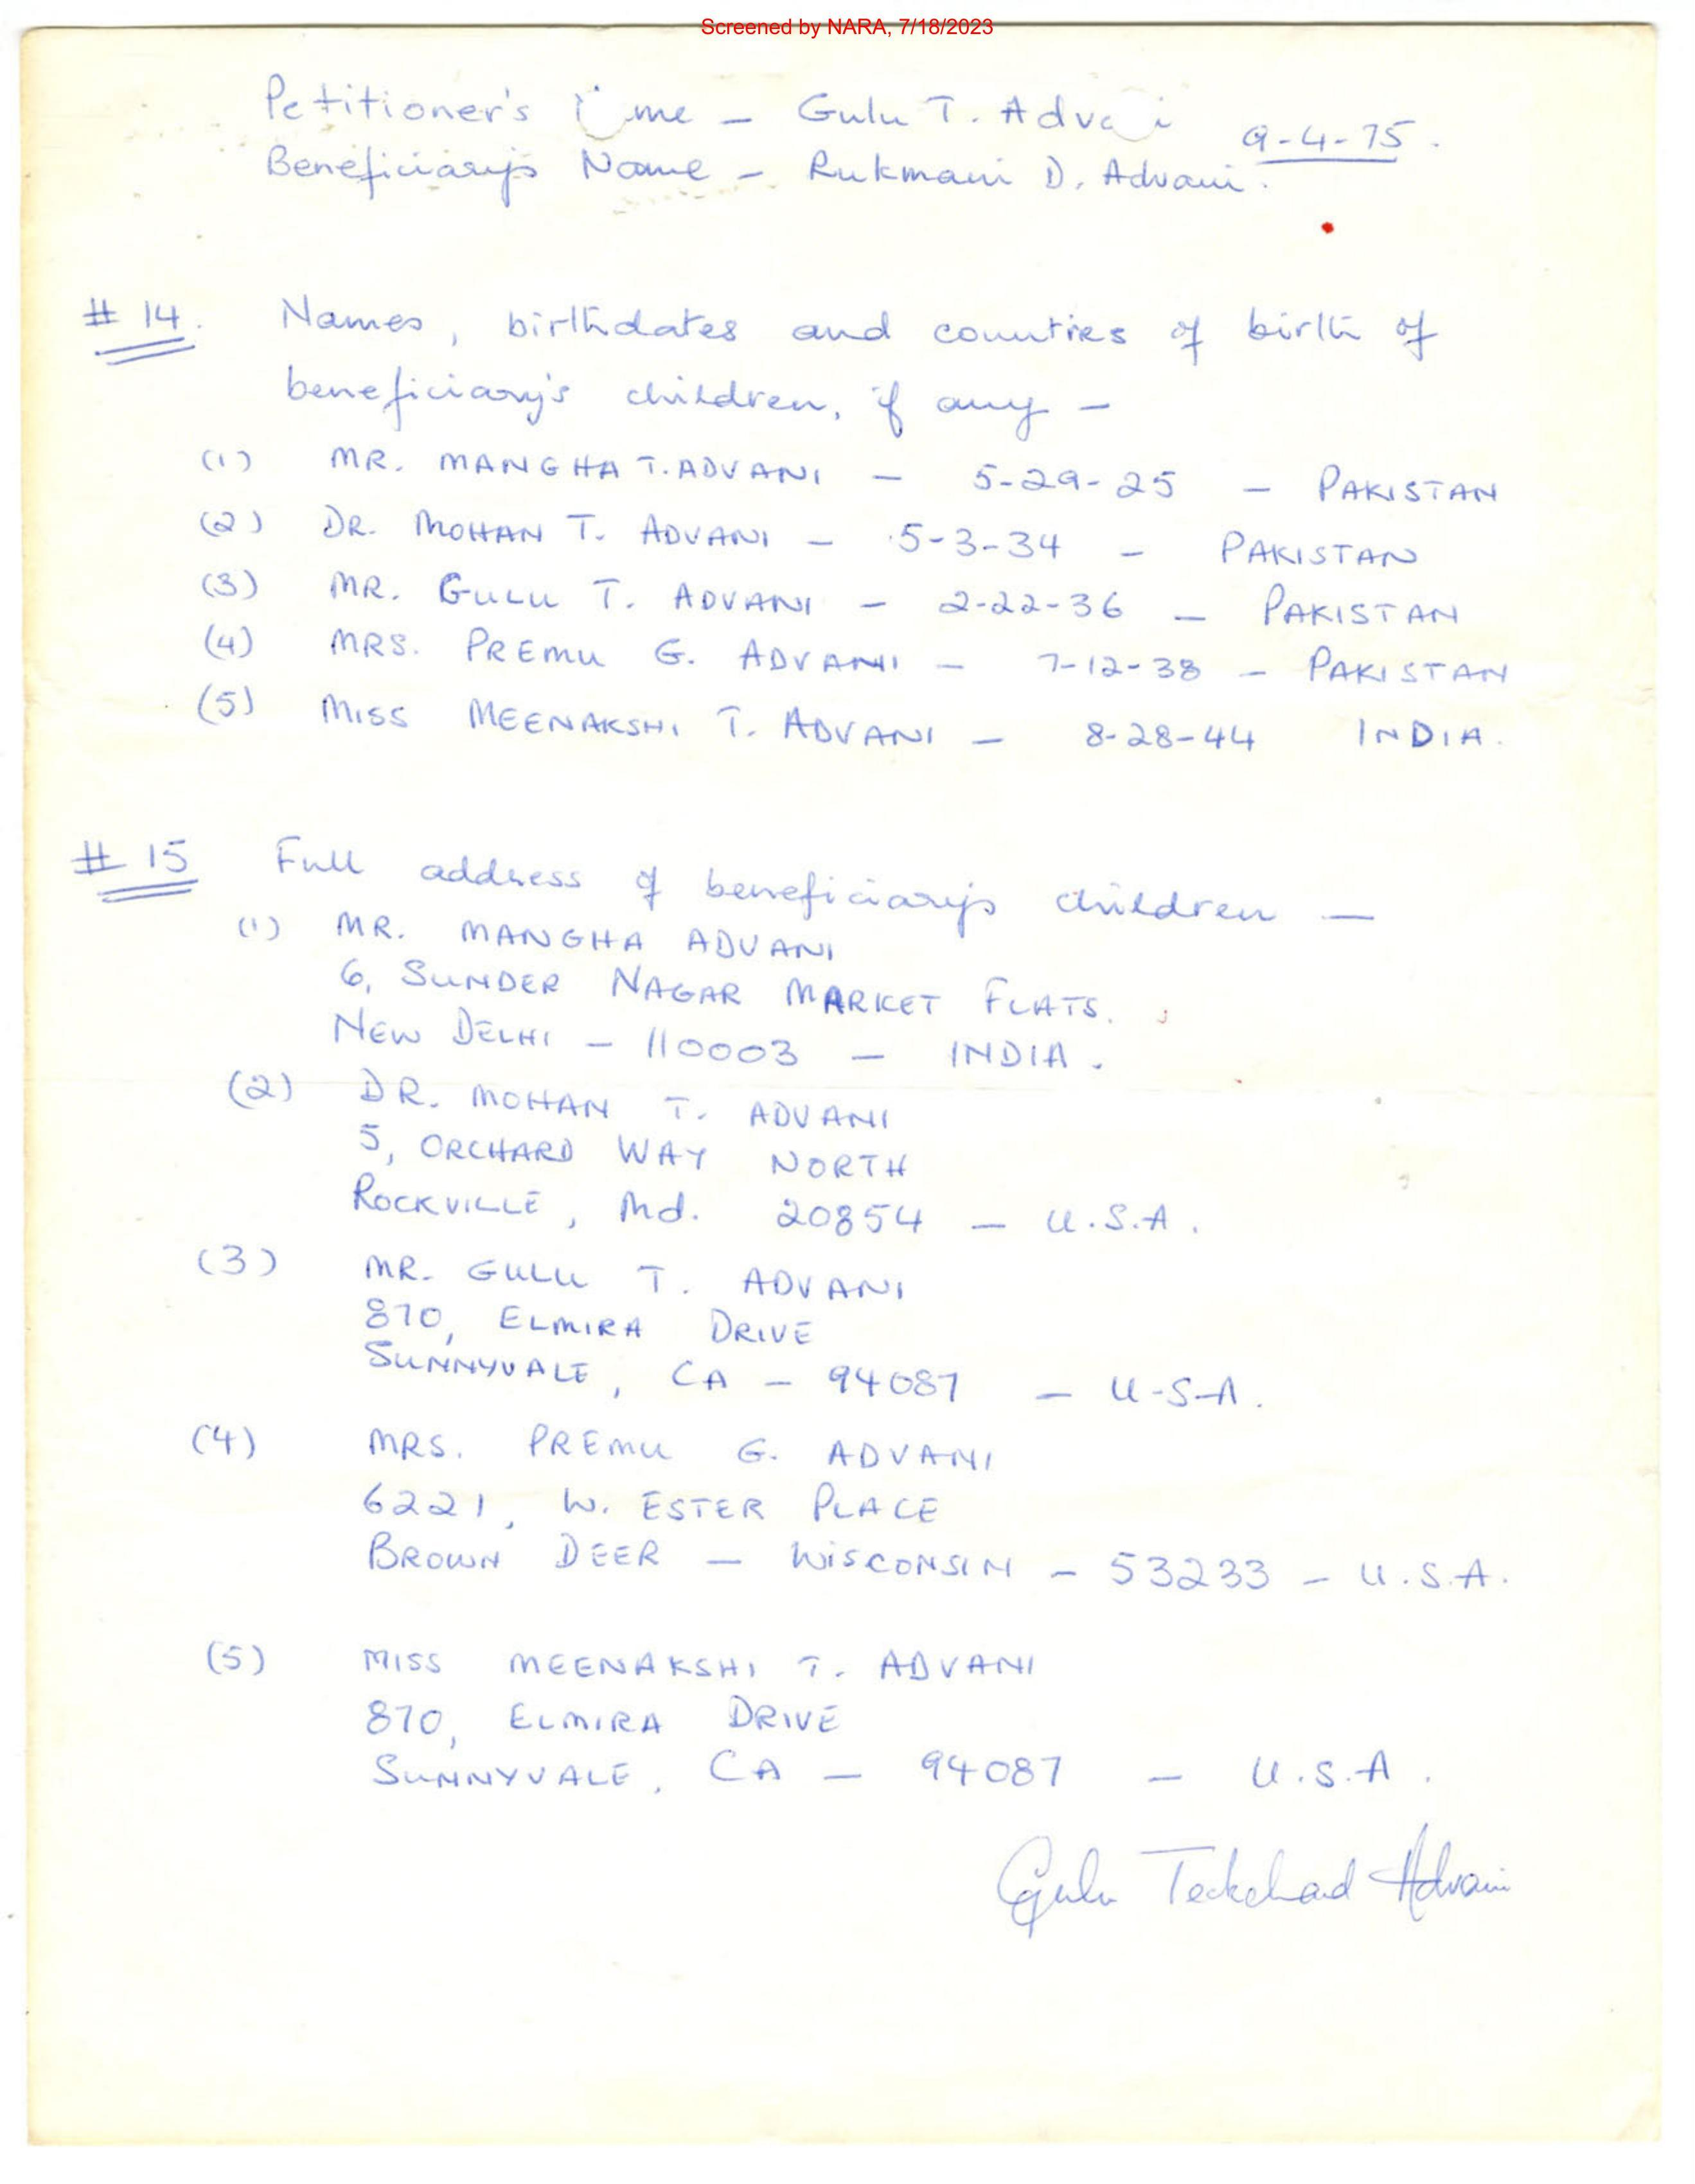 Screened by NARA, 7/18/2023
Petitioner's me – Gulu T. Adva i 9-4-75.
Beneficiary's Name – Rukmani D. Advani.
# 14. Names, birthdates and countries of birth of
beneficiary's children, if any –
(1) MR. MANGHA T. ADVANI – 5-29-25 – PAKISTAN
(2) DR. MOHAN T. ADVANI – 5-3-34 – PAKISTAN
(3) MR. GULU T. ADVANI – 2-22-36 – PAKISTAN
(4) MRS. PREMU G. ADVANI – 7-12-38 – PAKISTAN
(5) MISS MEENAKSHI T. ADVANI – 8-28-44 INDIA.
# 15 Full address of beneficiary's children —
(1) MR. MANGHA ADVANI
6, SUNDER NAGAR MARKET FLATS.
NEW DELHI – 110003 – INDIA.
(2) DR. MOHAN T. ADVANI
5, ORCHARD WAY NORTH
ROCKVILLE, Md. 20854 – U.S.A.
(3) MR. GULU T. ADVANI
870, ELMIRA DRIVE
SUNNYVALE, CA – 94087 – U-S-A.
(4) MRS. PREMU G. ADVANI
6221, W. ESTER PLACE
BROWN DEER – WISCONSIN – 53233 – U.S.A.
(5) MISS MEENAKSHI T. ADVANI
870, ELMIRA DRIVE
SUNNYVALE, CA – 94087 – U.S.A.
Gulu Teckchand Advani